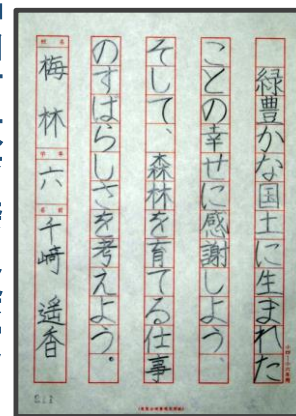 緑豊かな国土に生まれた
ことの幸せに感謝しよう、
そして、森林を育てる仕事
のすばらしさを考えよう。
梅林 六 千崎 遥香